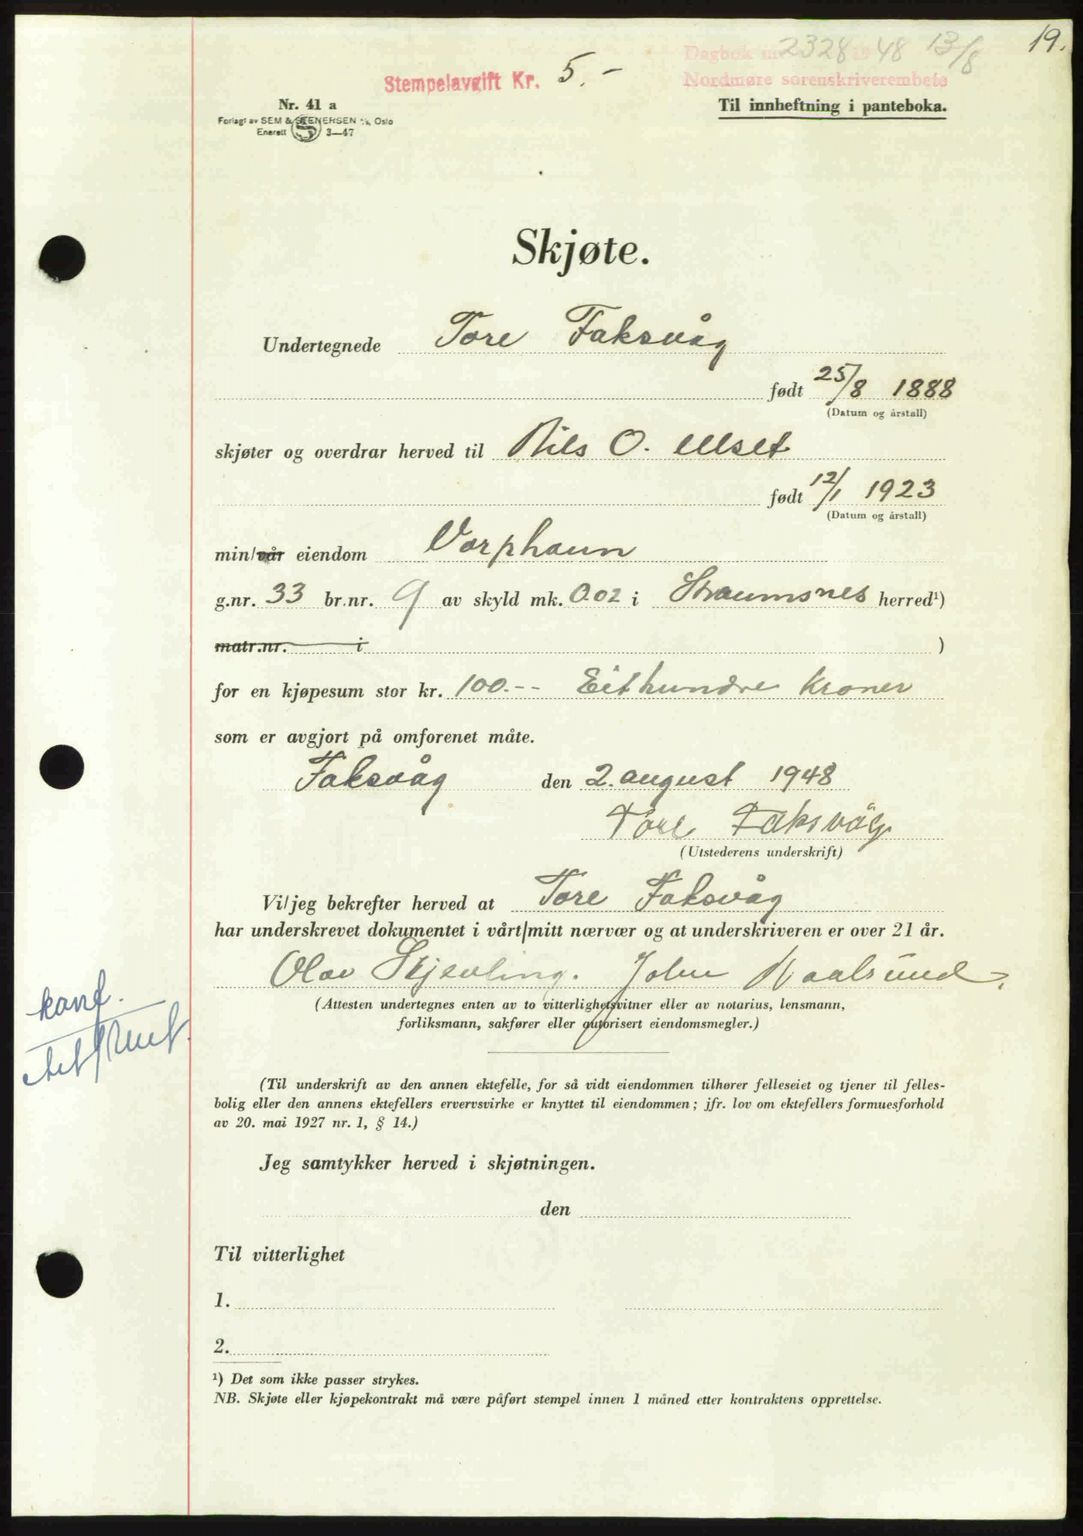 19.
Dagbok nr. 2328 19 48 13/8
Stempelavgift Kr. 5.-
Nordmøre sorenskriverembete
Nr. 41 a
Til innheftning i panteboka.
Forlagt av SEM & STENERSEN A/S, Oslo
Enerett 3—47
Skjøte.
Undertegnede Tore Faksvåg
født 25/8 1888
(Datum og årstall)
skjøter og overdrar herved til Nils O. Ulset
født 12/1 1923
(Datum og årstall)
min/vår eiendom Varphaun
g.nr. 33 br.nr. 9 av skyld mk. 0.02 i Straumsnes herred¹)
matr.nr. i )
for en kjøpesum stor kr. 100.-- Eithundre kroner
som er avgjort på omforenet måte.
Faksvåg den 2. august 1948
Tore Faksvåg
(Utstederens underskrift)
Vi/jeg bekrefter herved at Tore Faksvåg
har underskrevet dokumentet i vårt/mitt nærvær og at underskriveren er over 21 år.
Olav Skjevling. John
(Attesten undertegnes enten av to vitterlighetsvitner eller av notarius, lensmann,
forliksmann, sakfører eller autorisert eiendomsmegler.)
konf.
(Til underskrift av den annen ektefelle, for så vidt eiendommen tilhører felleseiet og tjener til felles-
bolig eller den annens ektefellers ervervsvirke er knyttet til eiendommen; jfr. lov om ektefellers formuesforhold
av 20. mai 1927 nr. 1, § 14.)
Jeg samtykker herved i skjøtningen.
den
Til vitterlighet
1.
2.
¹) Det som ikke passer strykes.
NB. Skjøte eller kjøpekontrakt må være påført stempel innen 1 måned etter kontraktens opprettelse.